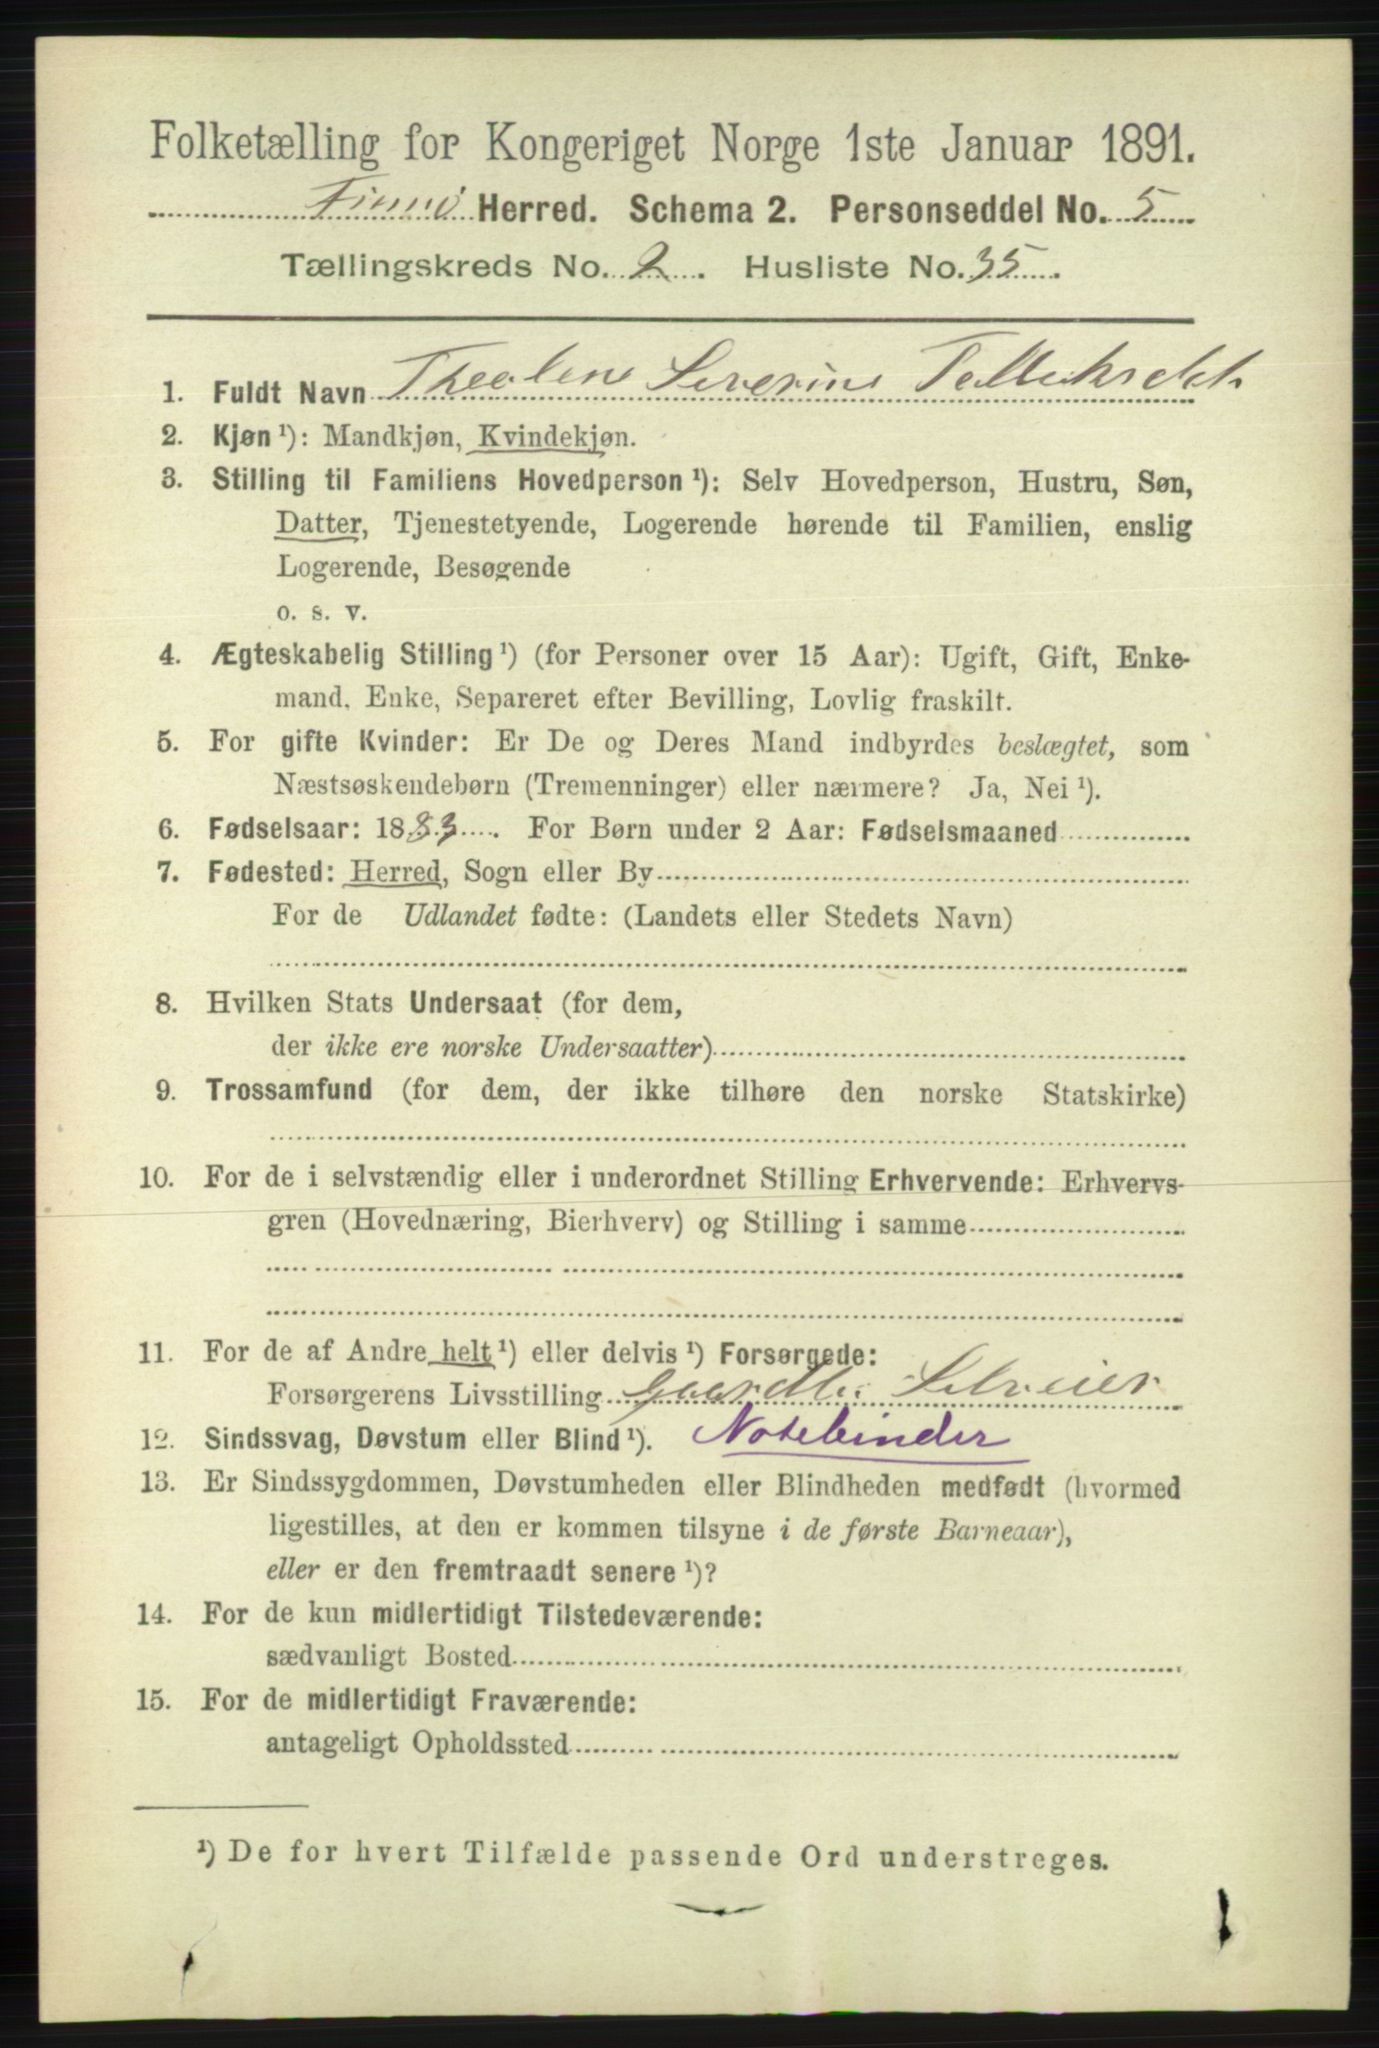 Folketælling for Kongeriget Norge 1ste Januar 1891.
Finnø Herred. Schema 2. Personseddel No. 5
Tællingskreds No. 2. Husliste No. 35.
1. Fuldt Navn Thealene Severine
2. Kjøn ¹): Mandkjøn, Kvindekjøn.
3. Stilling til Familiens Hovedperson ¹): Selv Hovedperson, Hustru, Søn,
Datter, Tjenestetyende, Logerende hørende til Familien, enslig
Logerende, Besøgende
o. s. v.
4. Ægteskabelig Stilling ¹) (for Personer over 15 Aar): Ugift, Gift, Enke-
mand, Enke, Separeret efter Bevilling, Lovlig fraskilt.
5. For gifte Kvinder: Er De og Deres Mand indbyrdes beslægtet, som
Næstsøskendebørn (Tremenninger) eller nærmere? Ja, Nei ¹).
6. Fødselsaar: 1883. For Børn under 2 Aar: Fødselsmaaned
7. Fødested: Herred, Sogn eller By
For de Udlandet fødte: (Landets eller Stedets Navn)
8. Hvilken Stats Undersaat (for dem,
der ikke ere norske Undersaatter)
9. Trossamfund (for dem, der ikke tilhøre den norske Statskirke)
10. For de i selvstændig eller i underordnet Stilling Erhvervende: Erhvervs-
gren (Hovednæring, Bierhverv) og Stilling i samme
11. For de af Andre helt ¹) eller delvis ¹) Forsørgede:
Forsørgerens Livsstilling Selveier
12. Sindssvag, Døvstum eller Blind ¹). Notebinder
13. Er Sindssygdommen, Døvstumheden eller Blindheden medfødt (hvormed
ligestilles, at den er kommen tilsyne i de første Barneaar),
eller er den fremtraadt senere ¹)?
14. For de kun midlertidigt Tilstedeværende:
sædvanligt Bosted
15. For de midlertidigt Fraværende:
antageligt Opholdssted
¹) De for hvert Tilfælde passende Ord understreges.